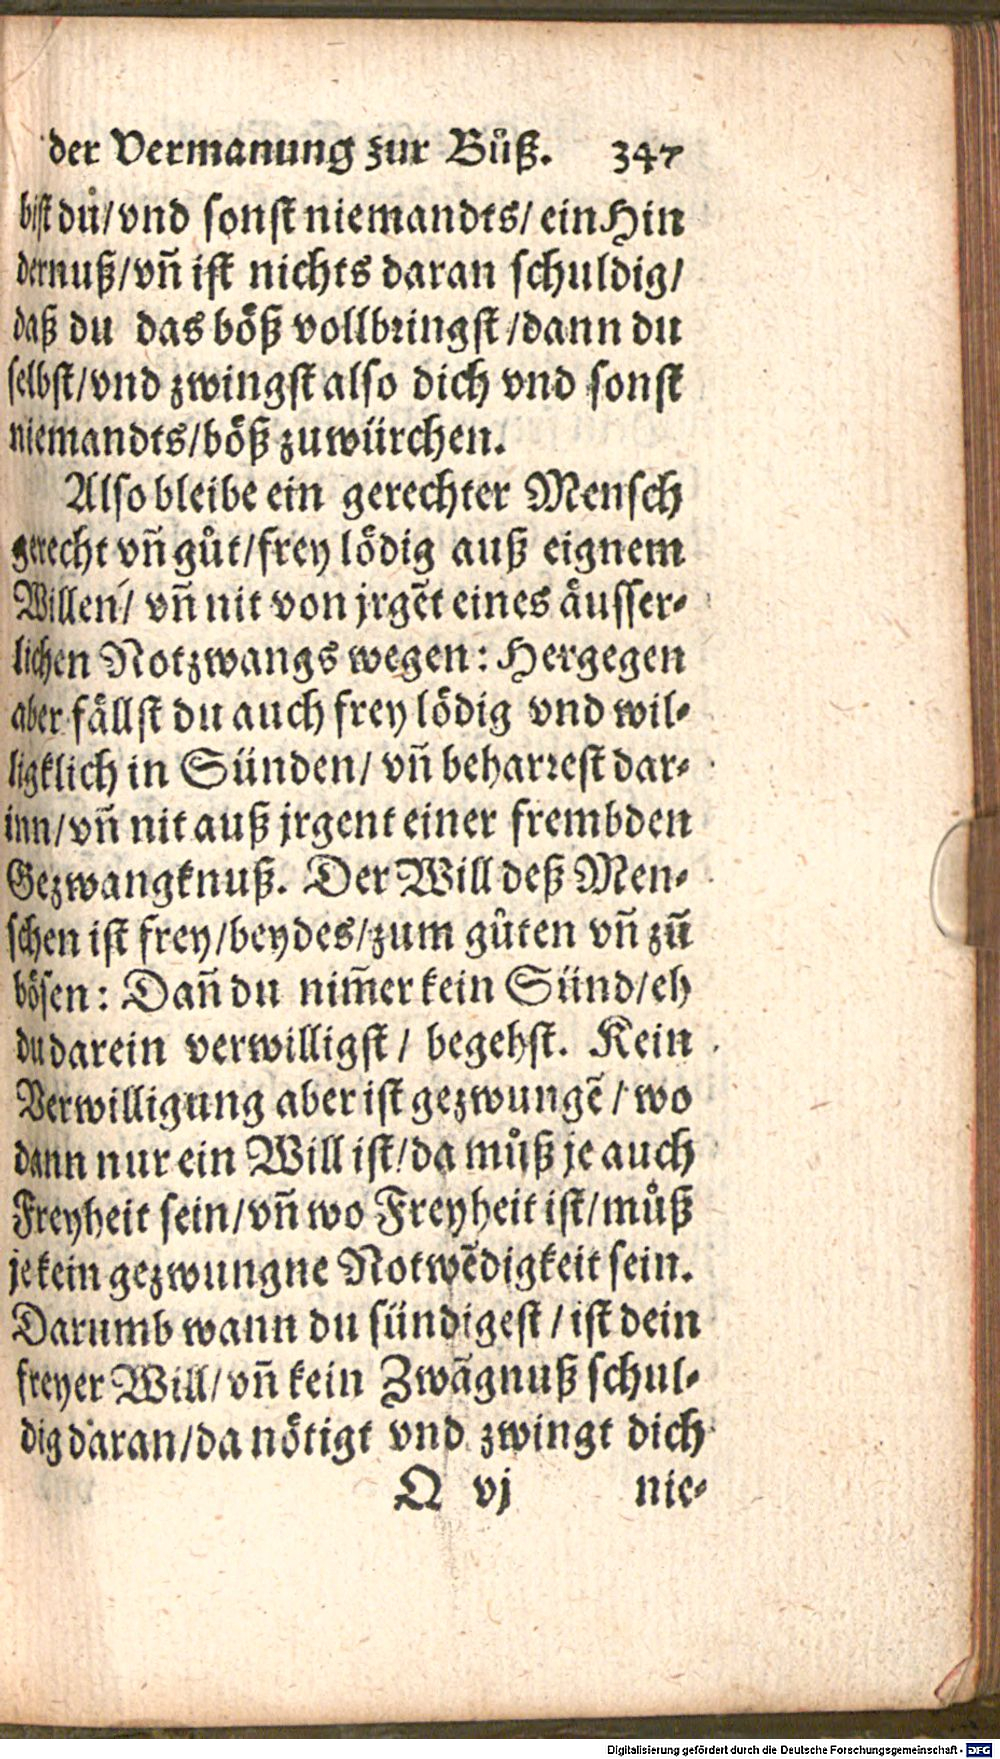 der Vermanung zur Bůß. 347
bist dů/vnd sonst niemandts/ ein Hin
dernuß/vn̄ ist nichts daran schuldig/
daß du das böß vollbringst/dann du
selbst/vnd zwingst also dich vnd sonst
niemandts/böß zuwürchen.
Also bleibe ein gerechter Mensch
gerecht vn̄ gůt/frey lödig auß eignem
Willen/ vn̄ nit von jrgēt eines äusser-
lichen Notzwangs wegen: Hergegen
aber fällst du auch frey lödig vnd wil-
ligklich in Sünden/ vn̄ beharrest dar-
inn/vn̄ nit auß jrgent einer frembden
Gezwangknuß. Der Will deß Men-
schen ist frey/beydes/zum gůten vn̄ zū
bösen: Dan̄ du nim̄er kein Sünd/eh
du darein verwilligst/ begehst. Kein
Verwilligung aber ist gezwungē/ wo
dann nur ein Will ist/da můß je auch
Freyheit sein/vn̄ wo Freyheit ist/můß
je kein gezwungne Notwēdigkeit sein.
Darumb wann du sündigest/ ist dein
freyer Will/vn̄ kein Zwāgnuß schul-
dig daran/da nötigt vnd zwingt dich
Q vj nie-
Digitalisierung gefördert durch die Deutsche Forschungsgemeinschaft - DFG